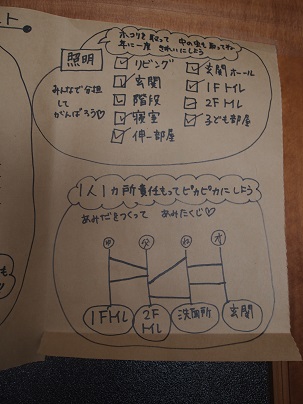 ホコリを取って 中の虫も取ってネ
年に一度 きれいにしよう
照明
みんなで分担
して
がんばろう♡
リビング
玄関
階段
寝室
伸一部屋
玄関ホール
1Fトイレ
2Fトイレ
子ども部屋
1人1カ所責任もってピカピカにしよう
あみだをつくって あみたくじ♡
1Fトイレ
2F
トイレ
洗面所
玄関